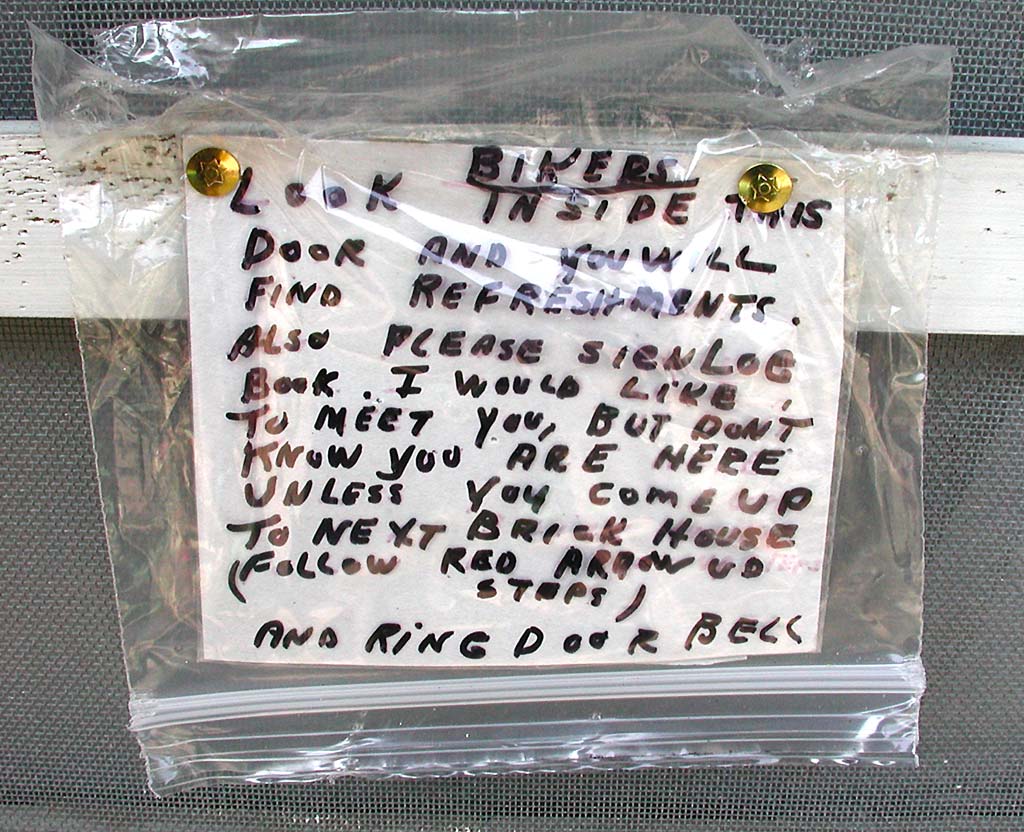 BIKERS
LOOK INSIDE THIS
DOOR AND YOU WILL
FIND REFRESHMENTS.
ALSO PLEASE SIGN LOG
BOOK. I WOULD LIKE
TO MEET YOU, BUT DONT
KNOW YOU ARE HERE
UNLESS YOU COME UP
TO NEXT BRICK HOUSE
(FOLLOW RED ARROW UP
STEPS)
AND RING DOOR BELL